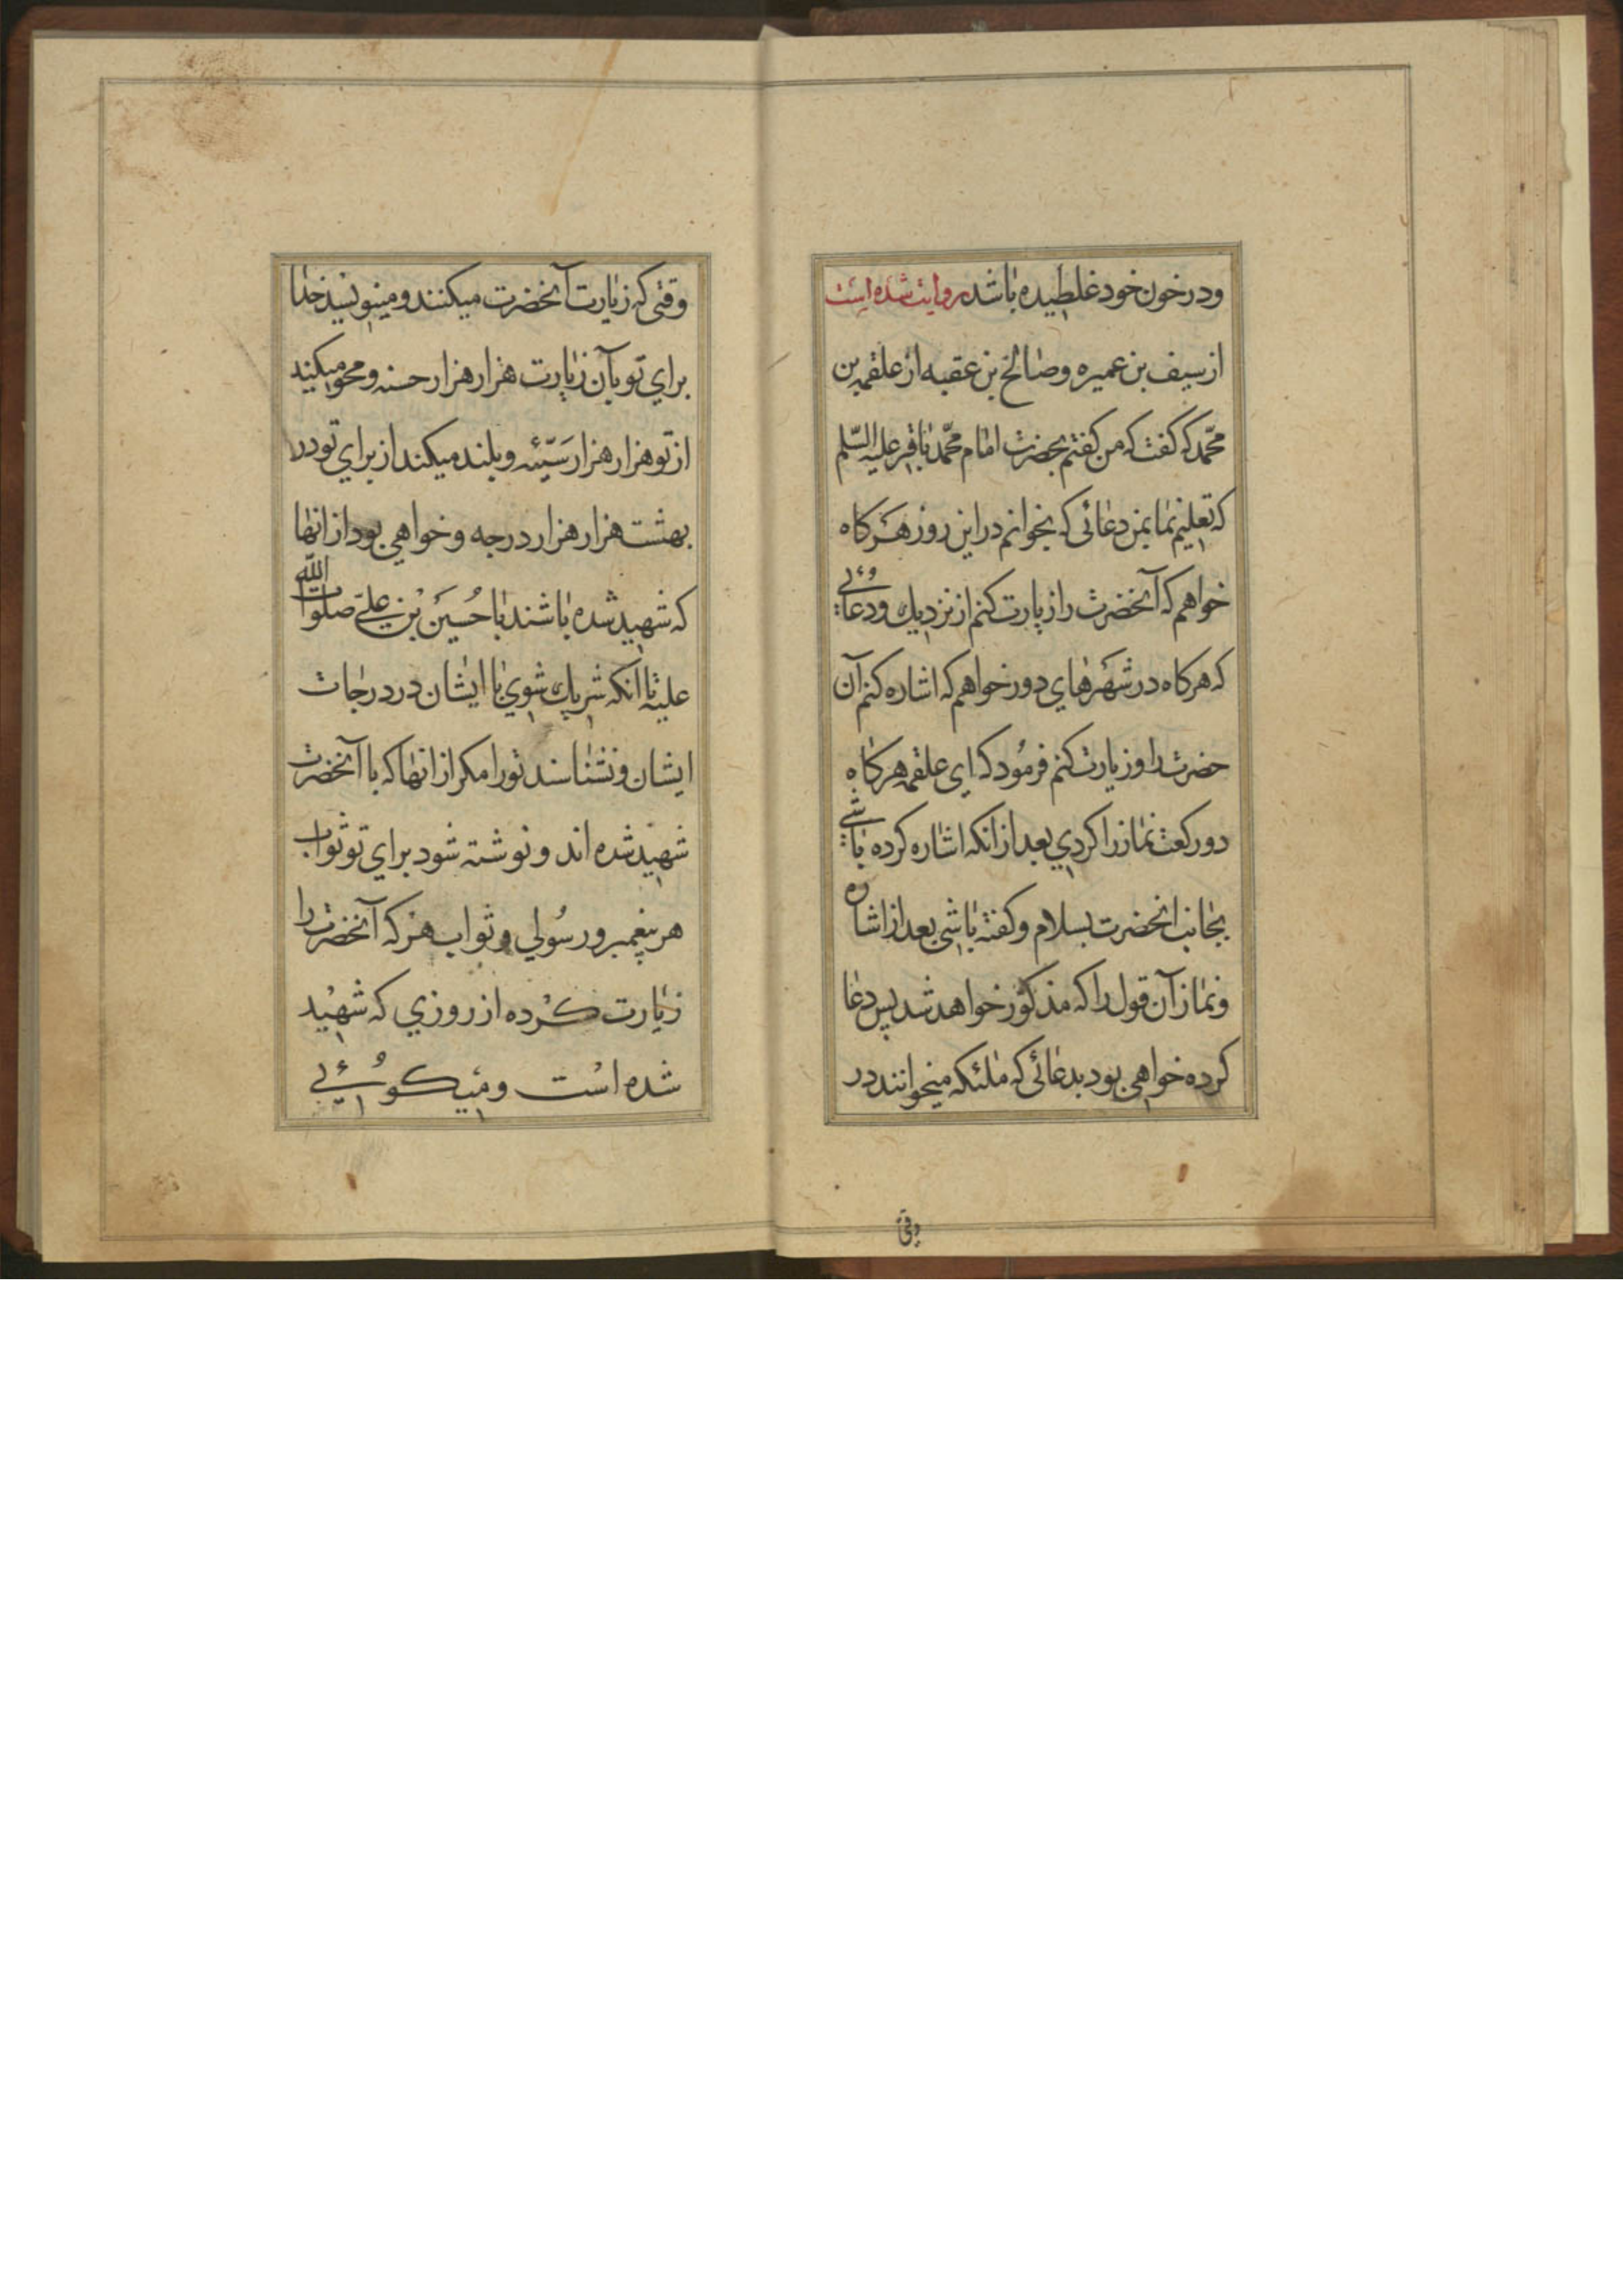 ودرخون خود غلطیده باشد روایت شده است
از سیف بن عمیره وصالح بن عقبه از علقمه بن
محمد که کفت که من کفتم بحضرت امام محمد باقر علیه السلم
که تعلیم نما بمن دعائی که بخوانم در این روز هرکاه
خواهم که آنحضرت را زیارت کنم از نزدیك ودعائی
که هرکاه در شهرهای دور خواهم که اشاره کنم آن
حضرت را وزیارت کنم فرمود که ای علقمه هرکاه
دو رکعت نماز را کردی بعد از انکه اشاره کرده باشی
بجانب انحضرت بسلام وکفته باشی بعد از اشاره
ونماز آن قول را که مذکور خواهد شد پس دعا
کرده خواهی بود بدعائی که ملئکه میخوانند در
وقتی
وقتی که زیارت آنحضرت میکنند ومینویسد خدا
برای تو بآن زیارت هزار هزار حسنه ومحو میکند
از تو هزار هزار سیّئه وبلند میکند از برای تو در
بهشت هزار هزار درجه وخواهی بود از انها
که شهید شده باشند با حُسین بن علیّ صلوات الله
علیه تا انکه شریك شوی با ایشان در درجات
ایشان ونشناسند تو را مکر از انها که با آنحضرت
شهید شده اند ونوشته شود برای تو ثواب
هر پیغمبر ورسُولی وثواب هرکه آنحضرت را
زیارت کرده از روزی که شهید
شده است ومیکوئی